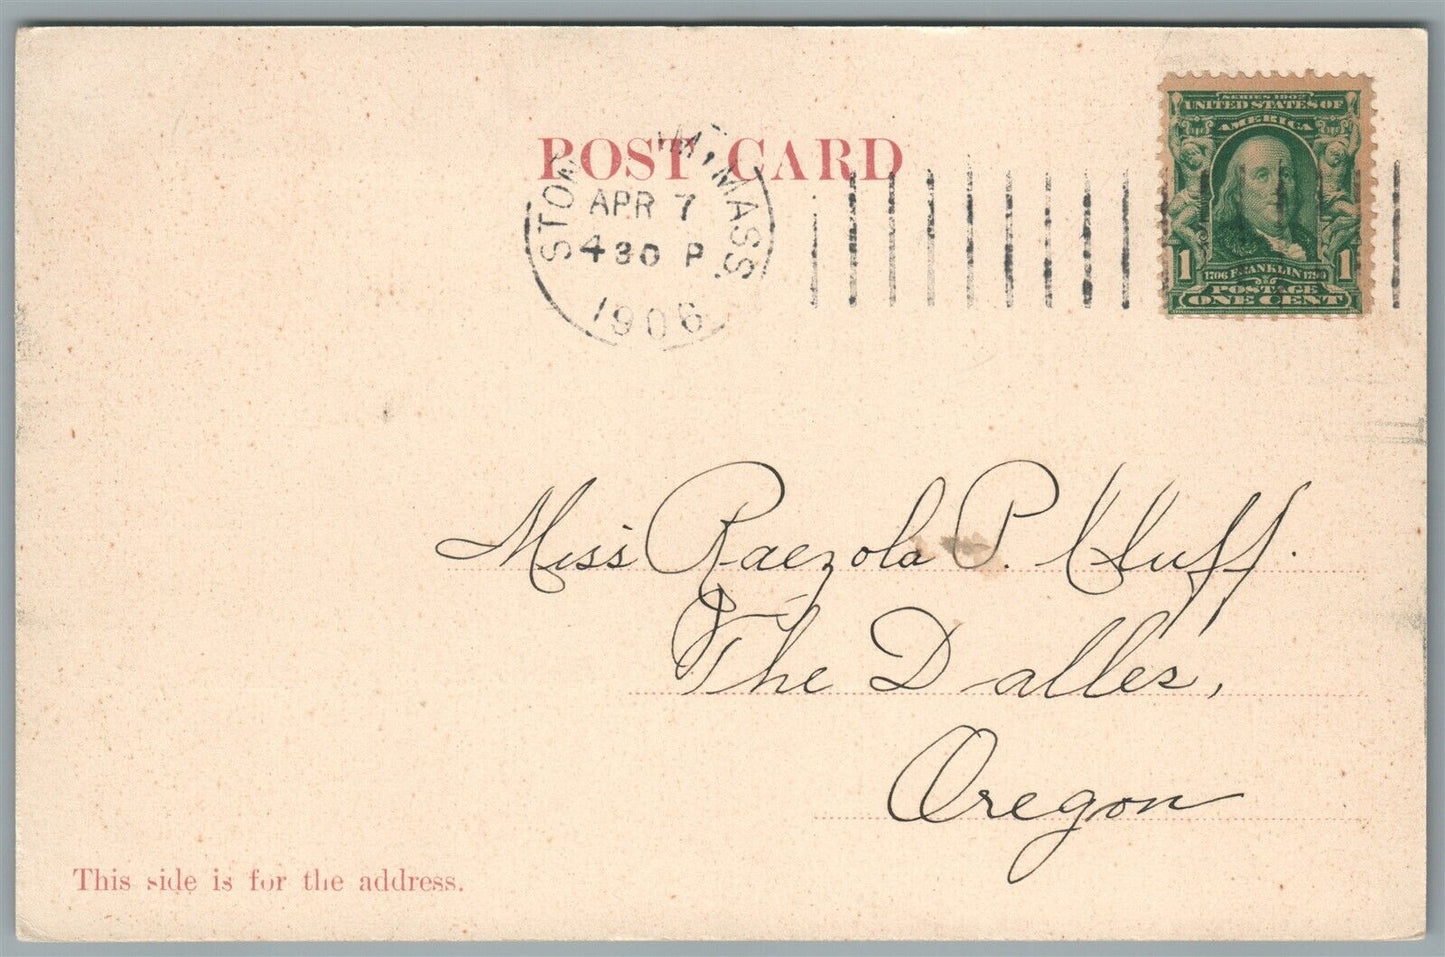 POST CARD
MASS.
APR 7
4 30 P
1906
SERIES 1902
UNITED STATES OF
AMERICA
1 1706 FRANKLIN 1790 1
POSTAGE
ONE CENT
Miss Raezola P. Huff.
The Dalles,
Oregon
This side is for the address.